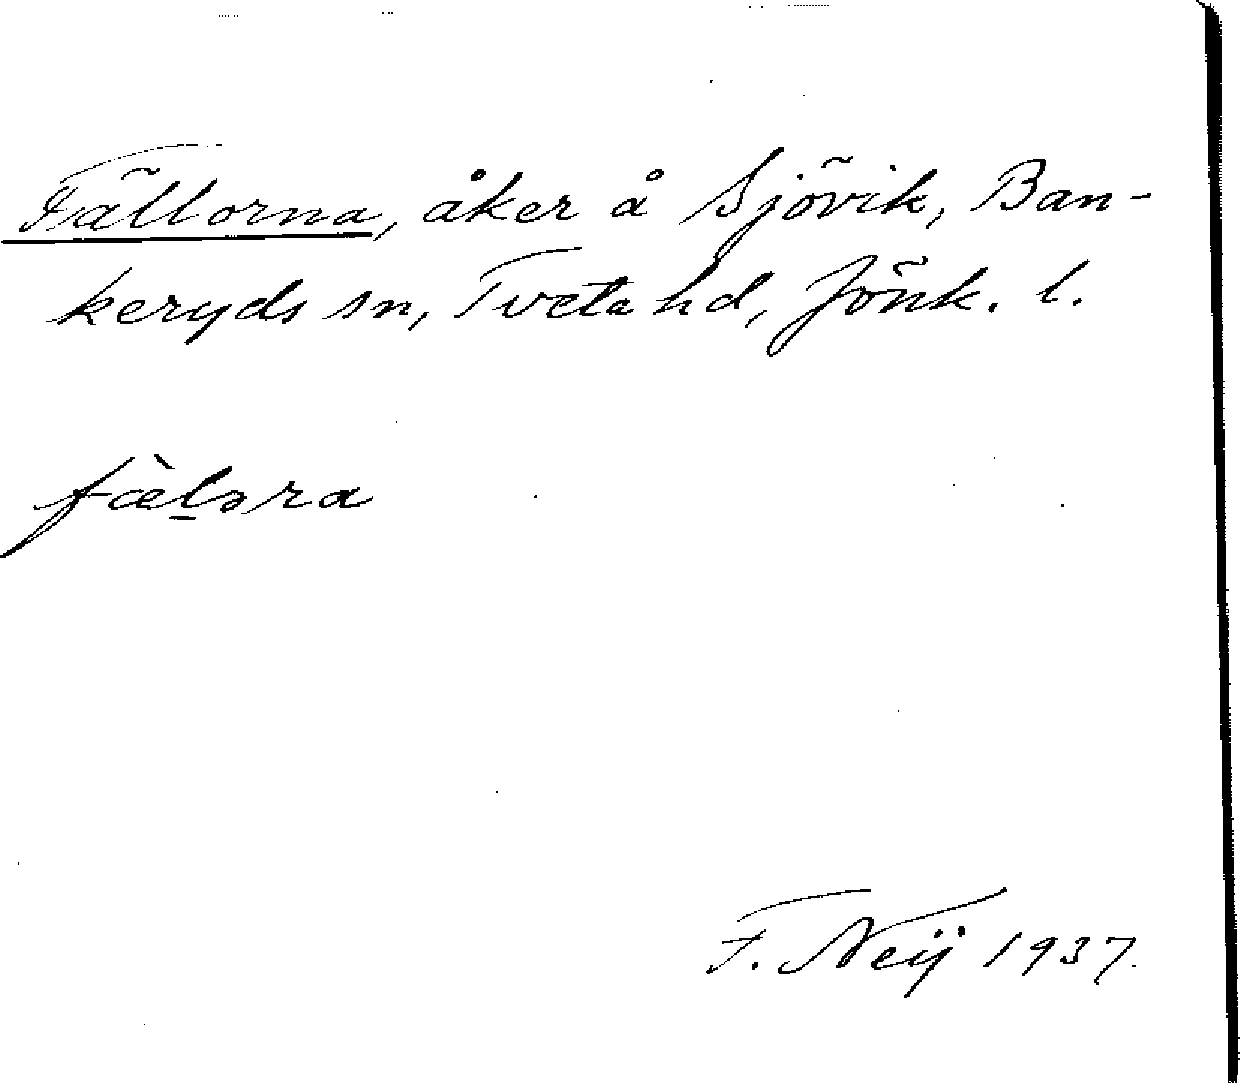 Fällorna, åker å Sjövik, Ban-
keryds sn, Tveta hd, Jönk. l.
fæ̀l̠ɔra
F. Neij 1937.